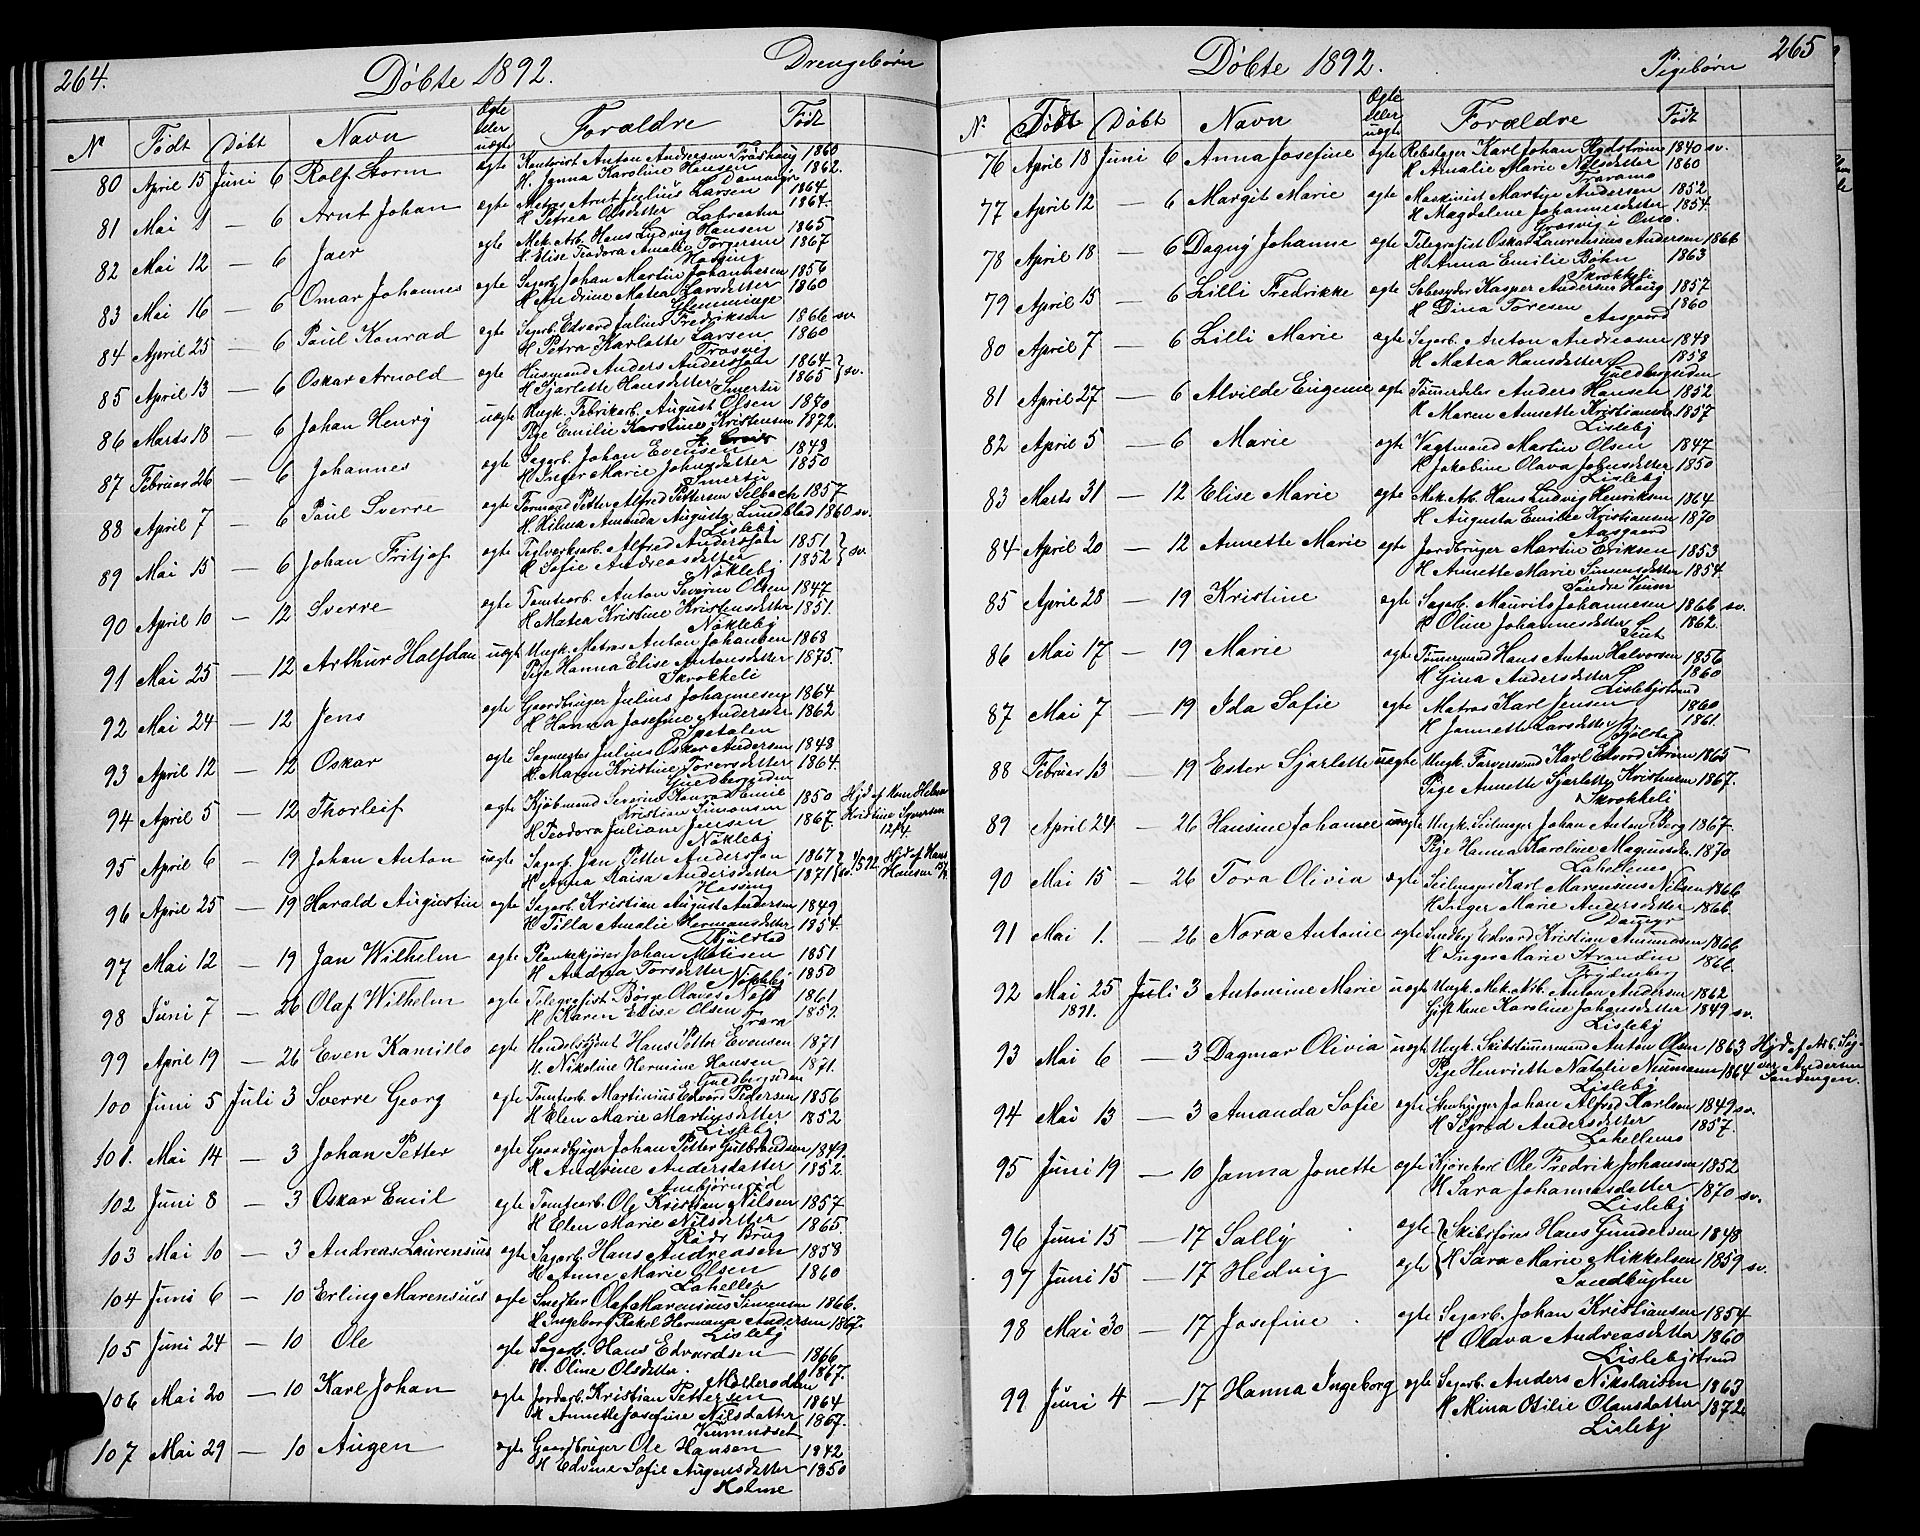 264.
Døbte 1892.
Drengebørn
N Født Døbt Navn Ægte eller uægte Forældre Født
80 April 15 Juni 6 Rolf Storm ægte Kontorist Anton Andersen Troshaug 1860
H. Janna Karoline Hansen 1862.
Dammyr
81 Mai 1 — 6 Arnt Johan ægte Matros Arnt Julius Larsen 1864.
H Petrea Olsdatter 1864.
82 Mai 12 — 6 Jaer ægte Mek. Arb. Hans Ludvig Hansen 1865
H. Elise Teodora Amalie Torgersen 1867
Hassing
83 Mai 16 — 6 Omar Johannes ægte Sagarb. Johan Martin Johannesen 1856
H Andrine Matea Larsdatter 1860
Glemminge
84 April 25 — 6 Paul Konrad ægte Sagarb. Edvard Julius Fredriksen 1866 sv.
H Petra Karlotte Larsen 1860
Trosvig
85 April 13 — 6 Oskar Arnold ægte Husmand Anders Andersson 1864 } sv.
H Sjarlotte Hansdatter 1865
Smertu
86 Marts 18 — 6 Johan Henry uægte Ungk. Fabrikarb. August Olsen 1870
Pige Emilie Karoline Kristensen 1872.
87 Februar 26 — 6 Johannes ægte Sagarb. Johan Evensen 1849
H Inger Marie Johnsdatter 1850
Smertu
88 April 7 — 6 Paul Sverre ægte Formand Petter Alfred Pettersen Selbach 1857
H. Hilma Amanda Augusta Lundblad 1860 sv.
Lisleby
89 Mai 15 — 6 Johan Fritjof ægte Teglverksarb. Alfred Andersson 1851 } sv.
H Sofie Andreasdatter 1852
Nøkleby
90 April 10 — 12 Sverre ægte Tomtearb. Anton Severin Olsen 1847
H Matea Kristine Kristensdatter 1851.
Nøkleby
91 Mai 25 — 12 Arthur Halfdan uægte Ungk. Matros Anton Johansen 1868
Pige Hanna Elise Antonsdatter 1875.
Skrokkeli
92 Mai 24 — 12 Jens ægte Gaardbruger Julius Johannesen 1864
H Hanna Josefine Andersen 1862
93 April 12 — 12 Oskar ægte Sagmester Julius Oskar Andersen 1848
H. Maren Kristine Torersdatter 1864.
Guldbergsiden
94 April 5 — 12 Thorleif ægte Kjøbmand Severin Konrad Emil 1850 Hjd af
Kristian Simonsen Kristine Syversen
H Teodora Juliane Jensen 1867. 12/4.
Nøkleby
95 April 6 — 19 Johan Anton uægte Sagarb. Jan Petter Andersson 1867 } Hjd af Hans
H Anna Kaisa Andersdatter 1871 sv. Hansen
Hassing
96 April 25 — 19 Harald Augustin ægte Sagarb. Kristian August Andersen 1849
H Tilla Amalie Hermansdatter 1854.
Bjølstad
97 Mai 12 — 19 Jan Wilhelm ægte Plankekjører Johan Matisen 1851
H Andrea Torsdatter 1850
Nøkleby
98 Juni 7 — 26 Olaf Wilhelm ægte Telegrafist Børge Olaves Næss 1861
H Karen Elise Olsen 1859.
Trara
99 April 19 — 26 Even Kamillo ægte Handelsfuldm. Hans Petter Evensen 1871
H. Nikoline Hermine Hansen 1871.
Guldbergsiden
100 Juni 5 Juli 3 Sverre Georg ægte Tomtearb. Martinius Edvard Pedersen 1856
H Elen Marie Martinsdatter 1852
Lisleby
101. Mai 14 — 3 Johan Petter ægte Gaardbruger Johan Petter Gulbrandsen 1849.
H Andrine Andersdatter 1852.
Ambjørnrød
102 Juni 8 — 3 Oskar Emil ægte Tomtearb. Ole Kristian Nilsen 1857
H Elen Marie Nilsdatter 1865.
Rāds Brug
103 Mai 10 — 3 Andreas Laurensius ægte Sagarb. Hans Andreasen 1858
H Anne Marie Olsen 1860
Lahellen
104 Juni 6 — 10 Erling Marensius ægte Snejker Olaf Marensius Simensen 1866.
H Ingeborg Rakel Hermana Andersen 1867.
Lisleby
105 Juni 24 — 10 Ole ægte Sagarb. Hans Edvardsen 1866
H. Oline Olsdatter 1867.
106 Mai 20 — 10 Karl Johan ægte Jordarb. Kristian Pettersen 1864
H Annette Josefine Nilsdatter 1867.
107 Mai 29 — 10 Augen ægte Gaardbruger Ole Hansen 1842
H Edvine Sofie Augensdatter 1850
Holme
265
Døbte 1892.
Pigebørn
N. Født Døbt Navn Ægte eller uægte Forældre Født
76 April 18 Juni 6 Anna Josefine ægte Rebslager Karl Johan Rydstrøm 1840 sv.
H Amalie Marie Nilsdatter 1860
77 April 12 — 6 Margit Marie ægte Maskinist Martin Andersen 1852
H Magdalene Johannesdatter 1854.
78 April 18 — 6 Dagny Johanne ægte Telegrafist Oskar Laurensius Andersen 1866
H Anna Emilie Bøhn 1863
Skrokkeli
79 April 15 — 6 Lilli Fredrikke ægte Kasper Andersen Haug 1857
H Dina Toresen 1860
Aasgaard
80 April 7 — 6 Lilli Marie ægte Sagarb. Anton Andreasen 1848
H Matea Hansdatter 1858
Guldbergsiden
81 April 27 — 6 Alvilde Eugenie ægte Tømmerdeler Anders Hansen 1852
H Maren Annette Kristiansdr 1857
Lisleby
82 April 5 — 6 Marie ægte Vagtmand Martin Olsen 1847
H Jakobine Olava Johnsdatter 1850
Lisleby
83 Marts 31 — 12 Elise Marie ægte Mek. Arb. Hans Ludvig Henriksen 1864
H Augusta Emilie Kristiansen 1870
Aasgaard
84 April 20 — 12 Annette Marie ægte Jordbruger Martin Eriksen 1853
H Annette Marie Simensdatter 1854.
Søndre
85 April 28 — 19 Kristine ægte Sagarb. Maurits Johannesen 1866 sv.
H Oline Johannesdatter 1862.
86 Mai 17 — 19 Marie ægte Tømmermand Hans Anton Halvorsen 1856
H Gina Andersdatter 1860
Lislebystrand
87 Mai 7 — 19 Ida Sofie ægte Matros Karl Jensen 1860
H Jannette Larsdatter 1861.
Bjølstad
88 Februar 13 19 Ester Sjarlotte uægte Ungk. Farversvend Karl Edvard Strøm 1865
Pige Annette Sjarlotte Kristensen 1867.
Skrokkeli
89 April 24 — 26 Hansine Johanne uægte Ungk. Seilmager Johan Anton Berg 1867.
Pige Hanna Karoline Magnusdr. 1870
Lahellens
90 Mai 15 — 26 Tora Olivia ægte Seilmager Karl Marensius Nilsen 1866
H Inger Marie Andersdatter 1866.
Dammyr
91 Mai 1. — 26 Nora Antonie ægte Smed Edvard Kristian Amundsen 1866
H Inger Marie Strandin 1866.
Frydenberg
92 Mai 25 Juli 3 Antonine Marie uægte Ungk. Mek. Arb. Anton Andersen 1862
1891. Gift Kone Karoline Johansdatter 1849 sv.
Lisleby
93 Mai 6 — 3 Dagmar Olivia uægte Ungk. Skibstømmermand Anton Olsen 1863 Hjd af Arb. Syver Andersen
Pige Henriette Natalie Neumann 1864 Sandengen.
Lisleby
94 Mai 13 — 3 Amanda Sofie ægte Stenhugger Johan Alfred Karlson 1849 sv.
H Sigrid Andersdatter 1857.
Lahellens
95 Juni 19 — 10 Janna Jonette ægte Kjørekarl Ole Fredrik Johansen 1852
H Sara Johannesdatter 1870 sv.
Lisleby
96 Juni 15 — 17 Sally ægte { Skibsfører Hans Gundersen 1848
97 Juni 15 — 17 Hedvig ægte H Sara Marie Mikkelsen 1859 sv.
Sandbugten
98 Mai 30 — 17 Josefine ægte Sagarb. Johan Kristiansen 1854
H Olava Andreasdatter 1860
Lislebystrand
99 Juni 4 — 17 Hanna Ingeborg ægte Sagarb. Anders Nikolaisen 1863
H Mina Otilie Olausdatter 1872
Lisleby